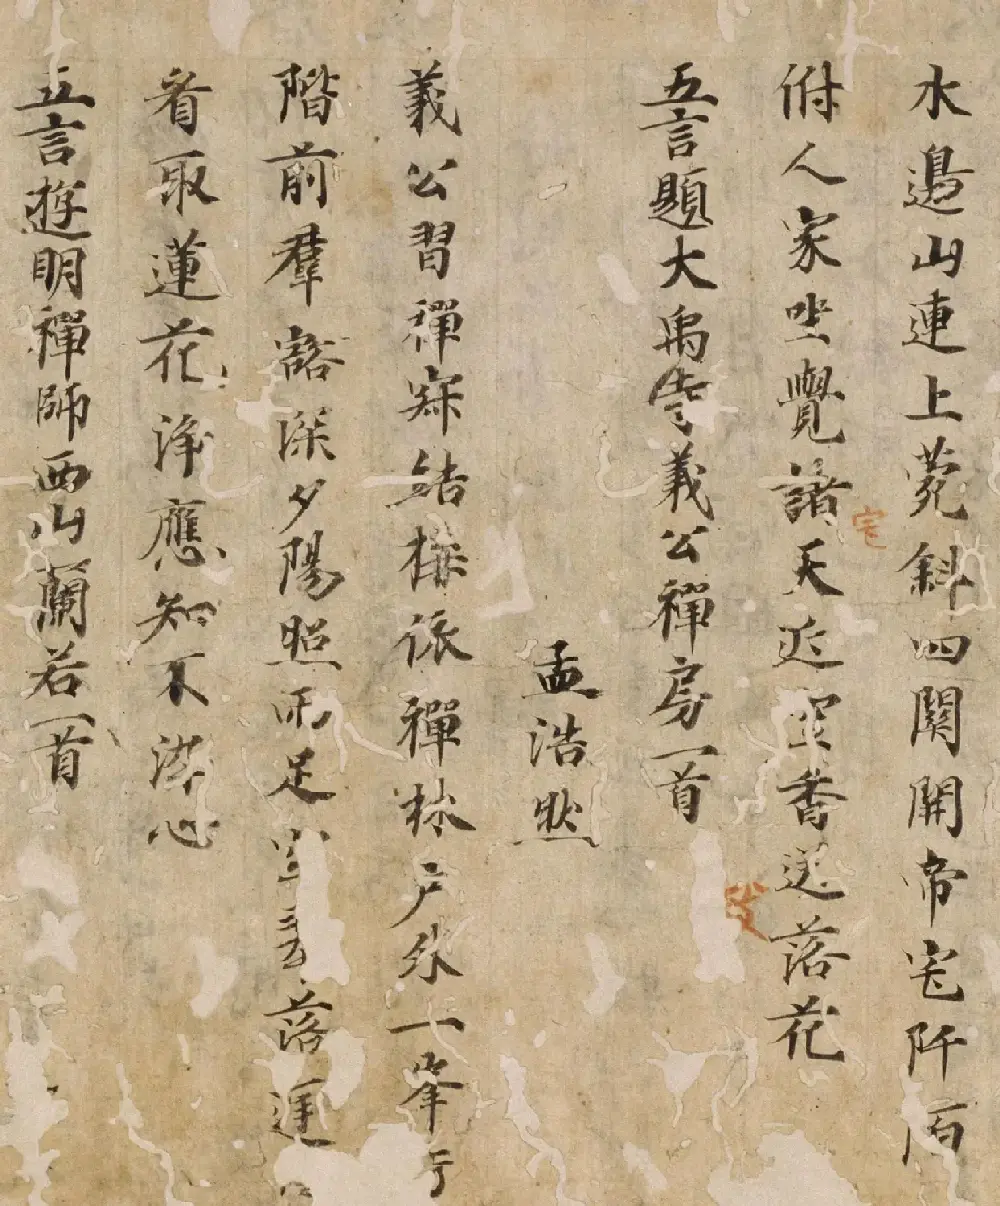 水邊山連上菀斜四關開帝宅阡陌
俯人家坐覺諸天近空香送落花
宅
五言題大禹寺義公禪房一首
孟浩然
義公習禪寂結構依禪林戶外一峯
階前羣豁深夕陽照雨足空翠落庭
看取蓮花淨應知不染心
五言遊明禪師西山蘭若一首